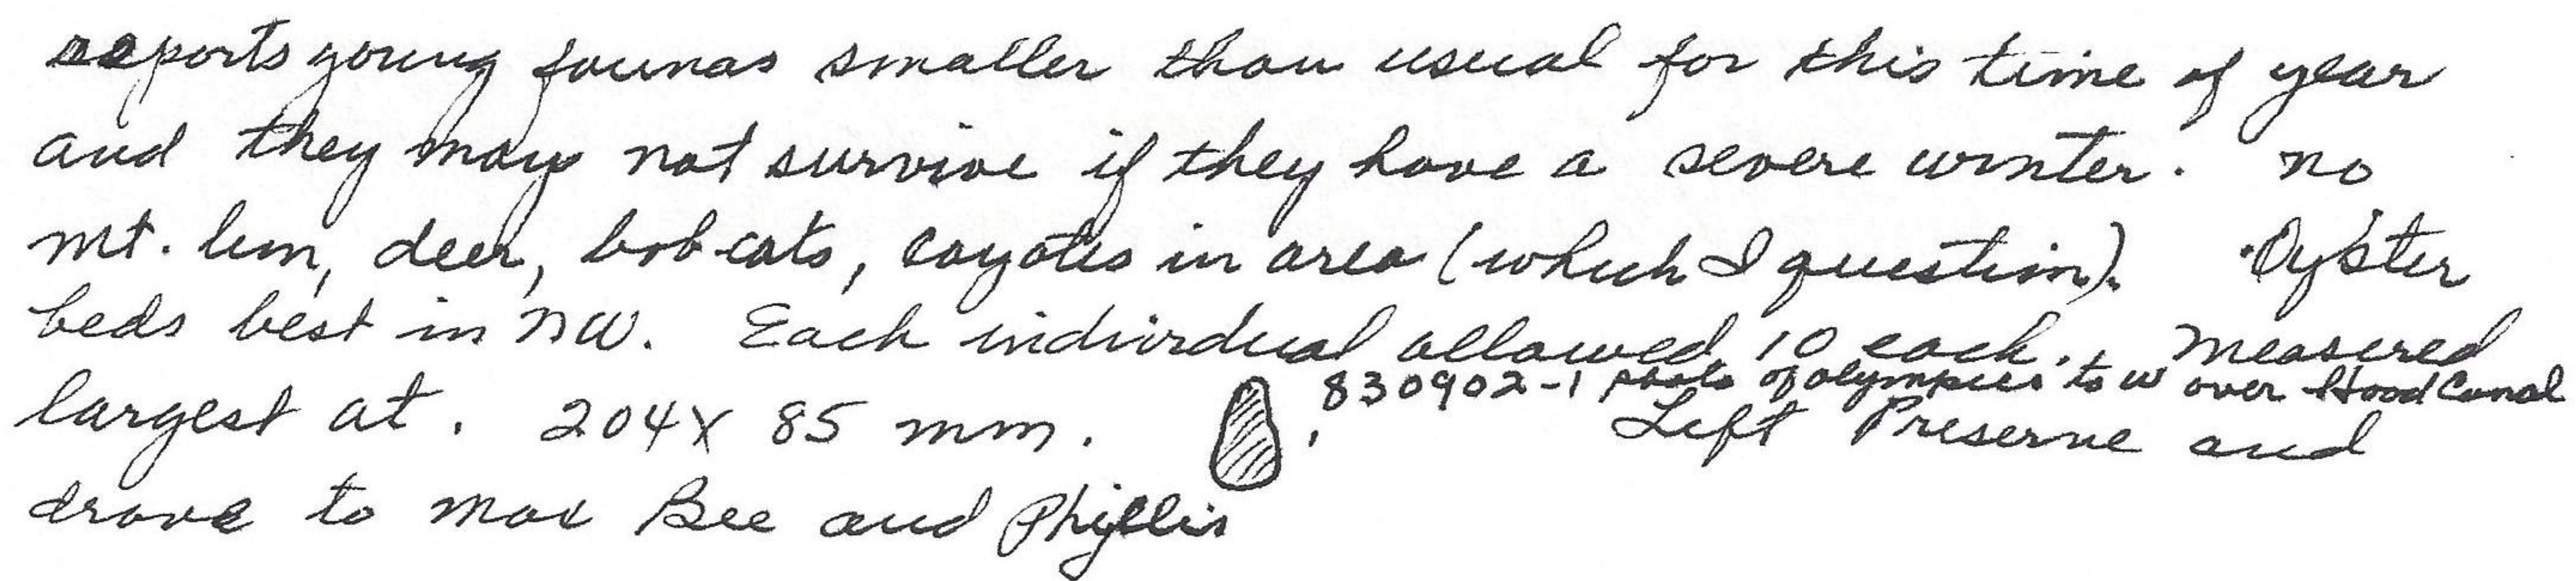 reports young founas smaller than usual for this time of year
and they may not survive if they have a severe winter. no
mt. lion, deer, bobcats, coyotes in area (which I question). Oyster
beds best in NW. Each individual allowed 10 each. Measured
830902-1 of olympics to W over Hood Canal
largest at. 204 X 85 mm. Left Preserve and
drove to Max Bee and Phyllis